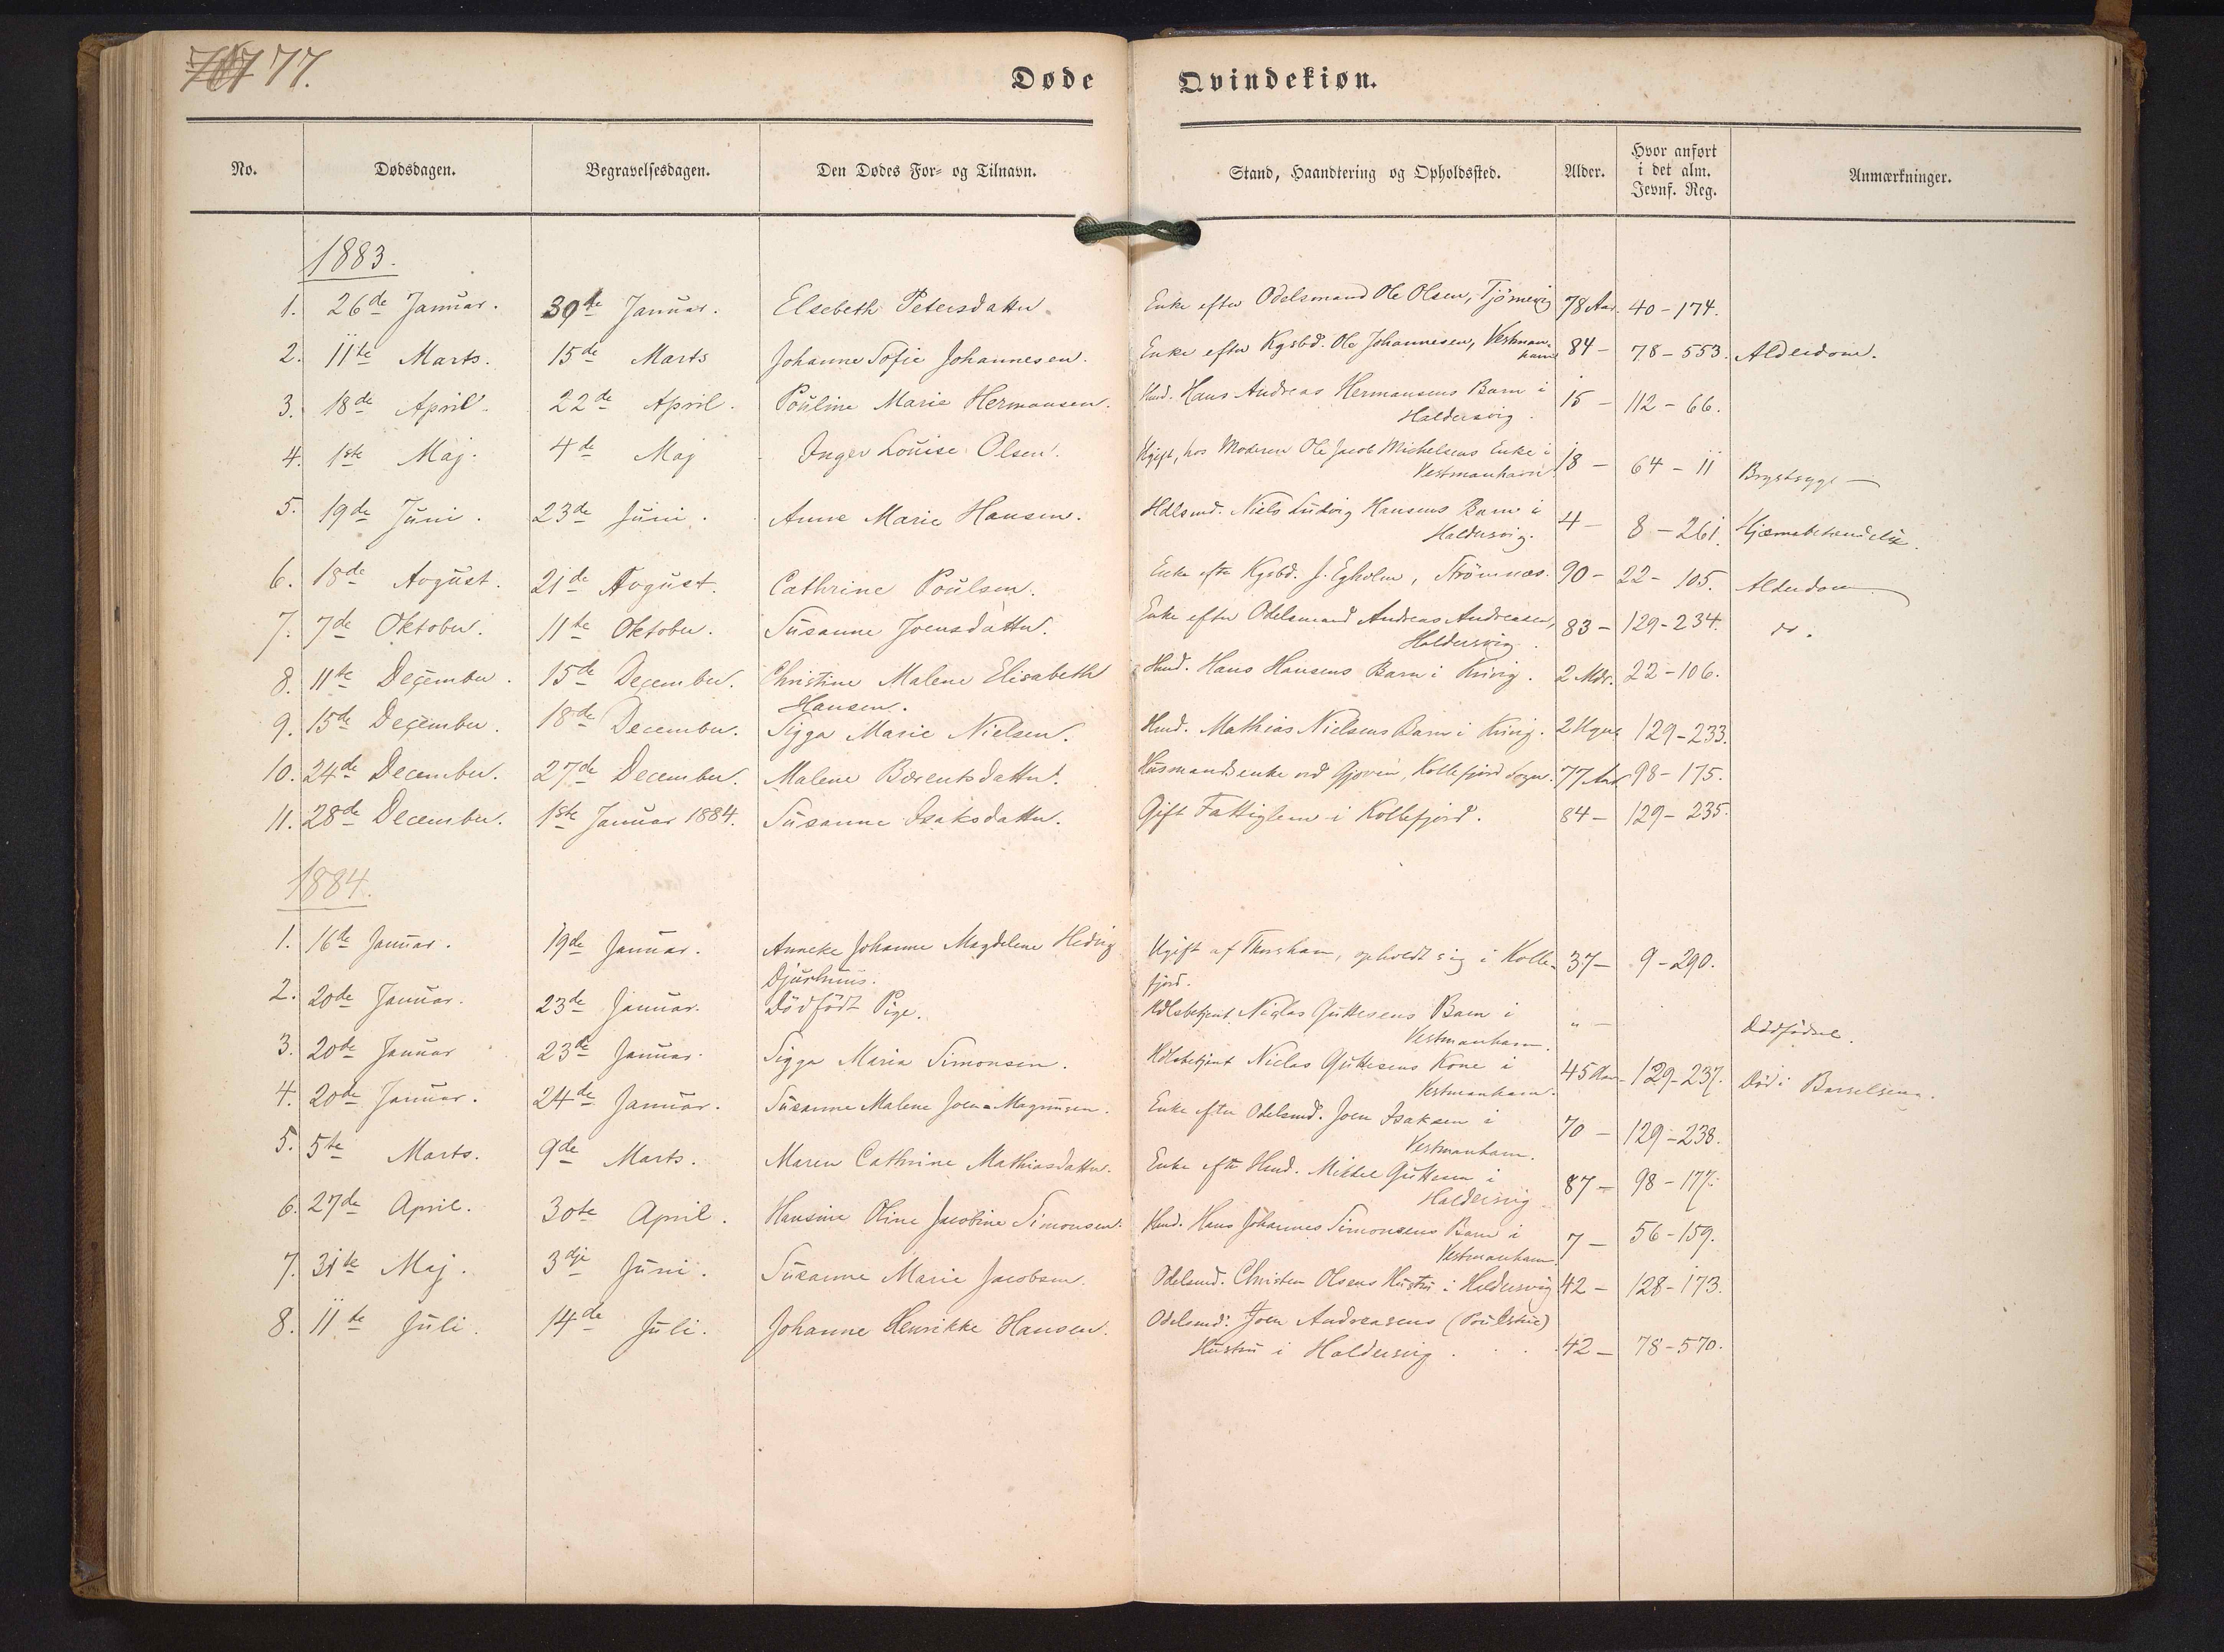 77.
Døde Qvindekiøn.
No. Dødsdagen. Begravelsesdagen. Den Dødes For- og Tilnavn. Stand, Haandtering og Opholdssted. Alder. Hvor anført i det alm. Jevnf. Reg. Anmærkninger.
1883.
1. 26de Januar. 30te Januar. Elsebeth Petersdatter Enke efter Odelsmand Ole Olsen, Tjörnevig 78 Aar. 40-174.
2. 11te Marts. 15de Marts Johanne Sofie Johannesen. Enke efter Kgsbd. Ole Johannesen, Vestman-
havn 84 - 78-553. Alderdom.
3. 18de April. 22de April. Pouline Marie Hermansen. Hmd. Hans Andreas Hermansens Barn i
Haldersvig. 15 - 112-66.
4. 1ste Maj. 4de Maj Inger Louise Olsen. Ugift, hos Moderen Ole Jacob Michelsens Enke i
Vestmanhavn 18 - 64-11 Brystsyge
5. 19de Juni. 23de Juni. Anne Marie Hansen. Hdlsmd. Niels Ludvig Hansens Barn i
Haldersvig. 4- 8-261.
6. 18de August. 21de August. Cathrine Poulsen. Enke efter Kgsbd. J. Egholm, Strömnæs. 90- 22-105. Alderdom
7. 7de Oktober. 11te Oktober. Susanne Joensdatter. Enke efter Odelsmand Andreas Andreasen,
Haldersvig. 83- 129-234. do.
8. 11te December. 15de December. Christine Malene Elisabeth
Hansen. Hmd. Hans Hansens Barn i Kvivig. 2 Mdr. 22-106.
9. 15de December. 18de December. Sigga Marie Nielsen. Hmd. Mathias Nielsens Barn i Kvivig. 2 Uger 129-233.
10. 24de December. 27de December. Malene Bærentsdatter. Husmandsenke ved Gjoven, Kollefjord Sogn. 77 Aar 98-175.
11. 28de December. 1ste Januar 1884. Susanne Isaksdatter. Gift Fattiglem i Kollefjord. 84- 129-235.
1884.
1. 16de Januar. 19de Januar. Anneke Johanne Magdelene Hedvig
Djurhuus. Ugift af Thorshavn, opholdt sig i Kolle-
fjord. 37- 9-290.
2. 20de Januar. 23de Januar. Dödfödt Pige. Hdlsbetjent Niclas Guttesens Barn i
Vestmanhavn. " - Dödfödsel.
3. 20de Januar 23de Januar. Sigga Maria Simonsen. Hdlsbetjent Niclas Guttesens Kone i
Vestmanhavn. 45 Aar- 129-237. Död i Barselseng.
4. 20de Januar. 24de Januar. Susanne Malene Joen-Magnusen. Enke efter Odelsmd. Joen Isaksen i
Vestmanhavn. 70 - 129-238.
5. 5te Marts. 9de Marts. Maren Cathrine Mathiasdatter. Enke eftr Hmd. Mikkel Guttesen i
Haldersvig 87- 98-177.
6. 27de April. 30te April. Hansine Oline Jacobine Simonsen. Hmd. Hans Johannes Simonsens Barn i
Vestmanhavn 7- 56-159.
7. 31te Maj. 3dje Juni. Susanne Marie Jacobsen. Odelsmd. Christen Olsens Hustru i Haldersvig 42- 128-173.
8. 11te Juli. 14de Juli. Johanne Henrikke Hansen. Odelsmd. Joen Andreasens
Hustru i Haldersvig. 42- 78-570.